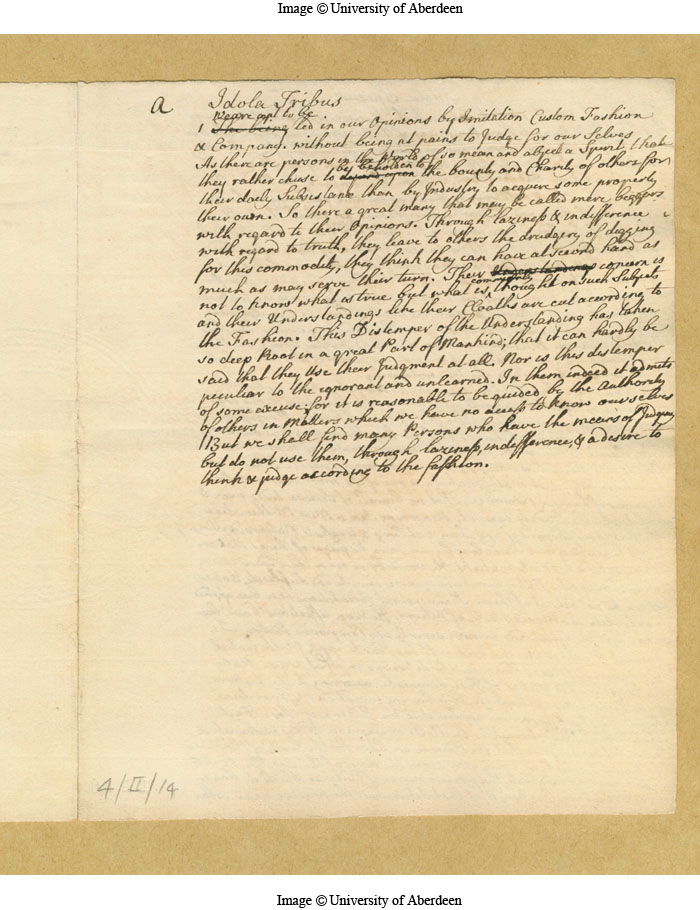 Image © University of Aberdeen
a Idola Tribus
we are apt to be
1 The being led in our Opinions by Imitation Custom Fashion
& Company. without being at pains to Judge for our Selves
As there are persons in the World of so mean and abject a Spirit that
by beholden to
they rather chuse to depend upon the bounty and Charity of others for
their daily Subsistance than by Industry to acquire some property
their own. So there a great many that may be called mere beggars
with regard to their Opinions. Through laziness & indifference
with regard to truth, they leave to others the drudgery of digging
for this commodity, they think they can have at second hand as
much as may serve their turn. Their Understandings concern is
commonly
not to know what is true but what is thought on such Subjects
and their Understandings like their Cloaths are cut according to
the Fashion. This Distemper of the Understanding has taken
so deep Root in a great Part of Mankind; that it can hardly be
said that they Use their Judgment at all. Nor is this distemper
peculiar to the ignorant and unlearned. In them indeed it admits
of some excuse: for it is reasonable to be guided by the Authority
of others in Matters which we have no access to know our selves
But we shall find many Persons who have the means of Judging
but do not use them, through laziness, indifference, & a desire to
think & judge according to the fashion.
4/II/14
Image © University of Aberdeen